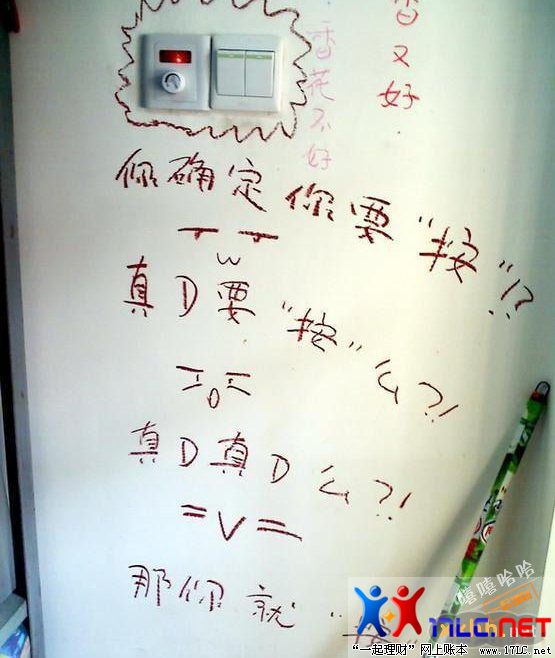 香又好
香花不好
你确定你要“按”!?
真D要“按”么?!
真D真D么?!
=V=
那你就“按
嘻嘻哈哈
17LC.NET
“一起理财”网上账本 www.17LC.net